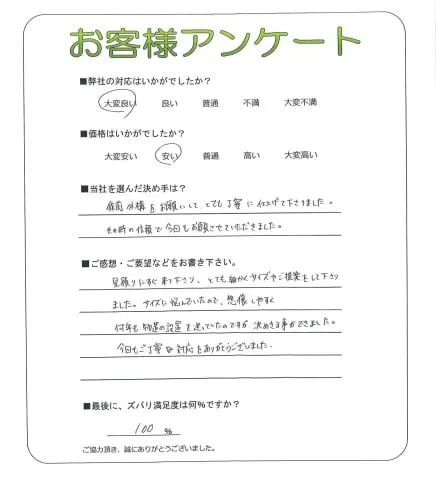 お客様アンケート
■弊社の対応はいかがでしたか？
大変良い 良い 普通 不満 大変不満
■価格はいかがでしたか？
大変安い 安い 普通 高い 大変高い
■当社を選んだ決め手は？
外構をお願いして、とても丁寧に仕上げて下さりました。
その時の信頼で今回もお願いさせていただきました。
■ご感想・ご要望などをお書き下さい。
見積りにすぐ来て下さり、とても細かくサイズやご提案をして下さり
ました。サイズに悩んでいたので、想像しやすく
何年も物置の設置を迷っていたのですが決める事ができました。
今回もご丁寧な対応をありがとうございました。
■最後に、ズバリ満足度は何％ですか？
100 ％
ご協力頂き、誠にありがとうございました。